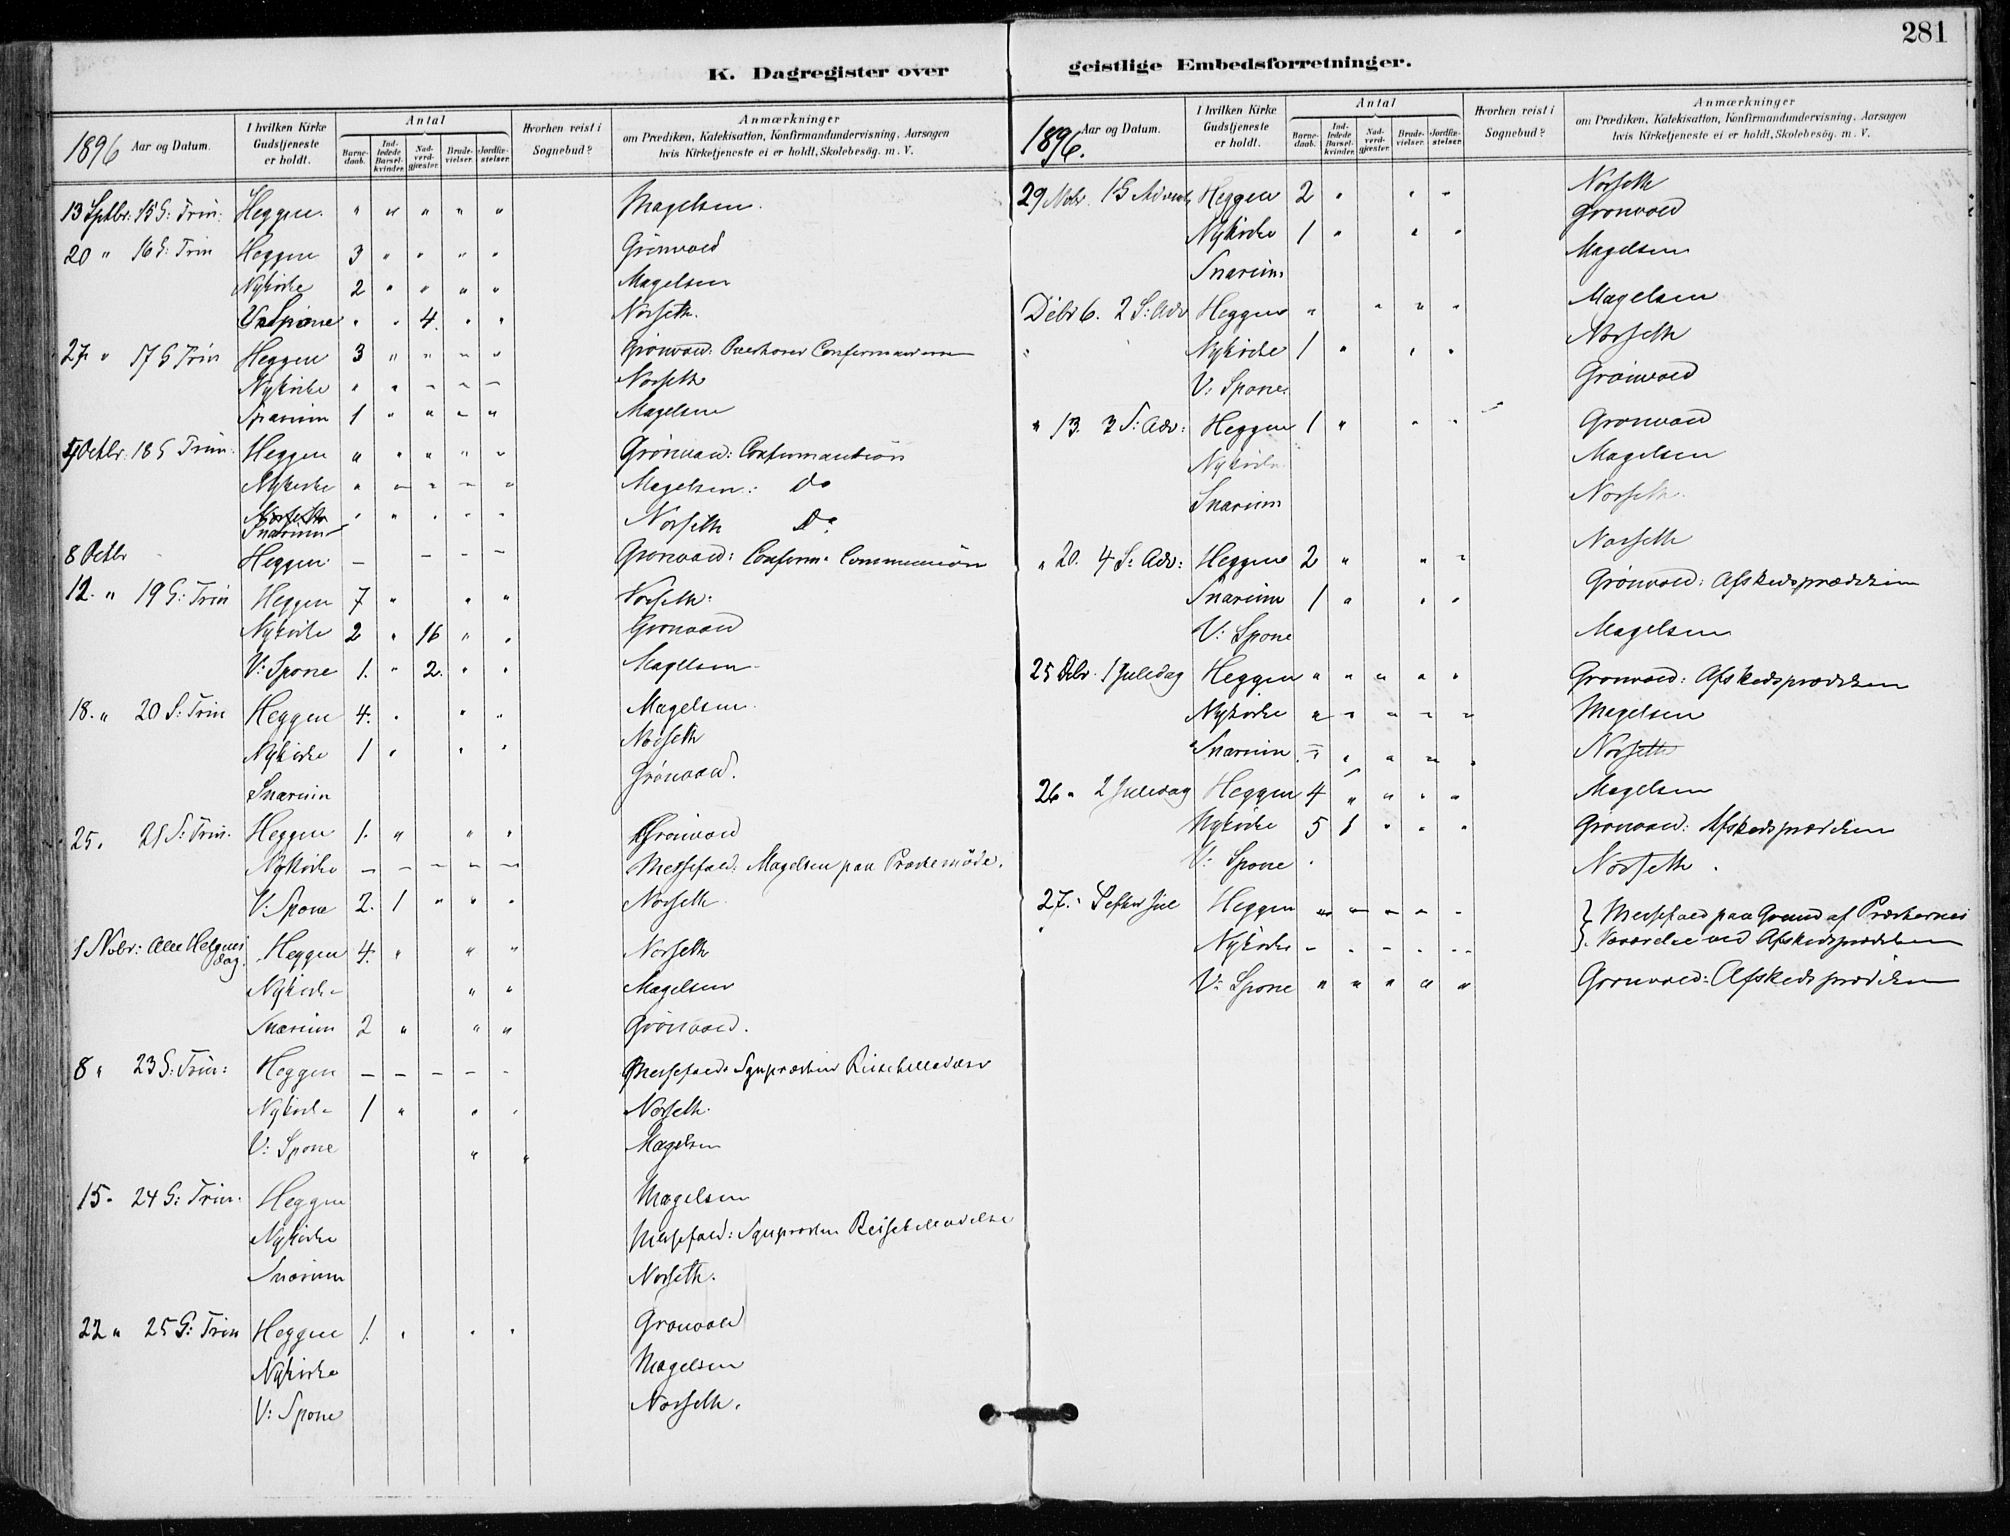 281
K. Dagregister over geistlige Embedsforretninger.
1896 Aar og Datum.
I hvilken Kirke Gudstjeneste er holdt.
Antal
Barne-daab. Ind-ledede Barsel-kvinder. Nad-verd-gjæster. Brude-vielser. Jordfæ-stelser.
Hvorhen reist i Sognebud?
Anmærkninger
om Prædiken, Katekisation, Konfirmandundervisning, Aarsagen
hvis Kirketjeneste ei er holdt, Skolebesøg. m. V.
13 Sptbr: 15 S: Trin: Heggen. " " " " " Magelsen.
20 " 16 S: Trin Heggen 3 " " " " Grönvold
Nykirke 2 " " " " Magelsen
V: Spone " " 4. " " Norseth.
27 " 17 S Trin Heggen 3 " " " " Grönvold: Overhører Confirmanderne
Nykirke " " – – – Norseth
Snarum 1 " " – " Magelsen
4 Octbr. 18 S Trin. Heggen " " " " " Grönvold: Confirmantion
Nykirke " – – – " Magelsen: Do
Norseth
Snarum " " " " " Norseth Do
8 Octbr Heggen. – – – – Grönvold: Confirm. Communion
12. " 19 S: Trin Heggen 7 " " " Norseth:
Nykirke 2 " 16 " " Grönvold
V: Spone 1. " 2. " " Magelsen
18. " 20 S: Trin Heggen 4. " " " Magelsen.
Nykirke 1 " " " Norseth
Snarum Grönvold.
25. 21 S: Trin. Heggen 1. " " " Grönvold
Nykirke – – – – – Messefald: Magelsen paa Prøstemöde.
V: Spone 2. 1 " " " Norseth
1 Nobr: Alle Helgnes dag. Heggen 4. " " " Norseth
Nykirke " " Magelsen
Snarum 2 " " " Grönvold.
8 " 23 S: Trin: Heggen – – – – – Messefald. Sgnpræstens Reisetilladelse
Nykirke 1 " " " Norseth.
V: Spone " " Magelsen
15. 24 S: Trin. Heggen Magelsen
Nykirke Messefald: Sgnpræsten Reisetilladelse
Snarum Norseth.
22 " 25 S: Trin Heggen 1. " " " Grönvold
Nykirke Magelsen
V: Spone Norseth.
1896. Aar og Datum.
I hvilken Kirke Gudstjeneste er holdt.
Antal
Barne-daab. Ind-ledede Barsel-kvinder. Nad-verd-gjæster. Brude-vielser. Jordfæ-stelser.
Hvorhen reist i Sognebud?
Anmærkninger
om Prædiken, Katekisation, Konfirmandundervisning, Aarsagen
hvis Kirketjeneste ei er holdt, Skolebesøg. m. V.
29 Nobr. 1 S Advent Heggen 2 " " " Norseth
Nykirke 1 " " " Grönvold
Snarum Magelsen
Debr 6. 2 S: Adv Heggen " " " " Magelsen
" Nykirke 1 " " " Norseth
V: Spone. Grönvold
" 13. 3 S: Adv: Heggen 1 " " " Grönvold
Nykirke Magelsen
Snarum Norseth.
" 20. 4 S: Adv: Heggen 2 " " " Norseth
Snarum 1 " " " Grönvold: Afskedsprædiken
V: Spone Magelsen
25 Debr. 1 Juledag Heggen " " " " " Grönvold: Afskedsprædiken
Nykirke " " " " " Magelsen
Snarum " " " " " Norseth
26 " 2 Juledag Heggen 4 " " " " Magelsen
Nykirke 5 1 " " " Grönvold: Afskedsprædiken
V: Spone Norseth.
27. " S efter Jul Heggen " – – – – } Messefald paa Grund af Præsternes
" Nykirke – – – – – } Nærværelse ved Afskedsprædiken
V: Spone " " " " " Grönvold: Afskedsprædiken